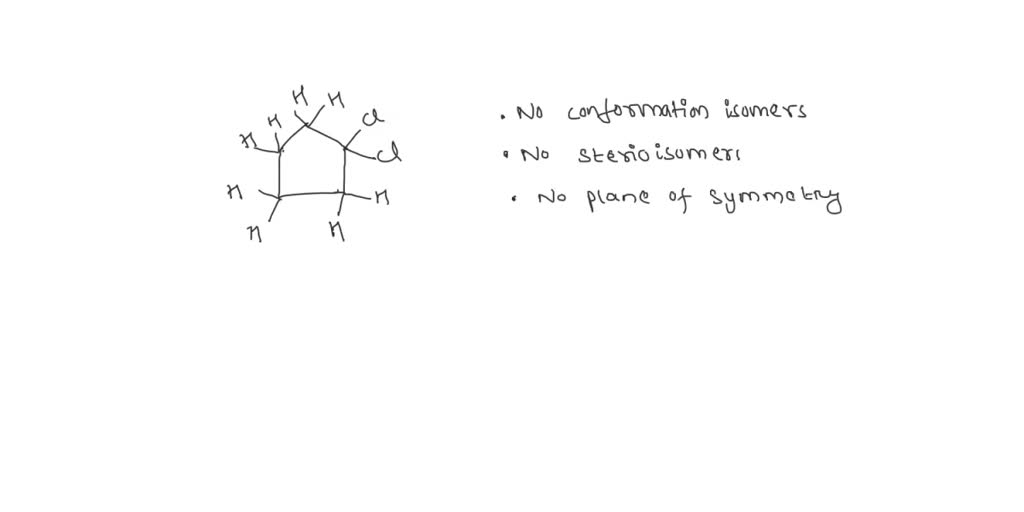 H H
H Cl
H Cl
H H
H H
. No conformation isomers
. No sterioisomers
. No plane of symmetry